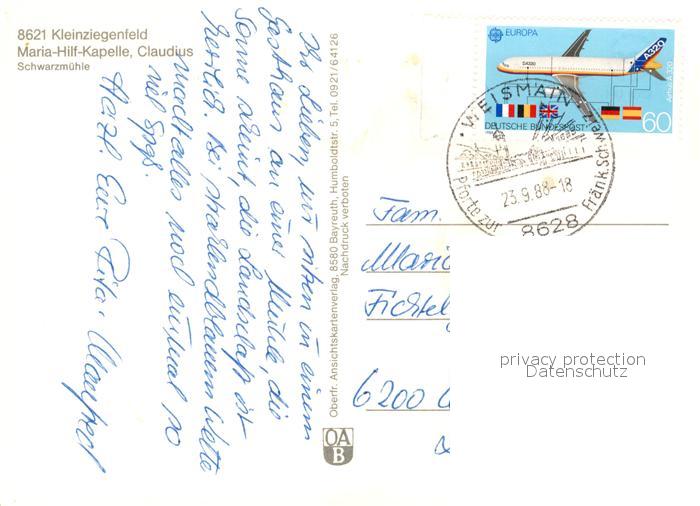 8621 Kleinziegenfeld
Maria-Hilf-Kapelle, Claudius
Schwarzmühle
Ihr Lieben, wir sitzen in einem
Gasthaus an einer Mühle, die
Sonne scheint, die Landschaft ist
herrlich. Bei strahlendblauem Wetter
macht alles noch einmal so
viel Spaß.
Herzl. Eure Rita, Manfred
Oberfr. Ansichtskartenverlag, 8580 Bayreuth, Humboldtstr. 5, Tel. 0921/64126
Nachdruck verboten
OA
B
EUROPA
A320
Airbus A320
DEUTSCHE BUNDESPOST
60
WEISMAIN
23.9.88-18
Pforte zur Fränk. Schweiz
8628
Fam.
Mari
Fichtel
6200
privacy protection
Datenschutz